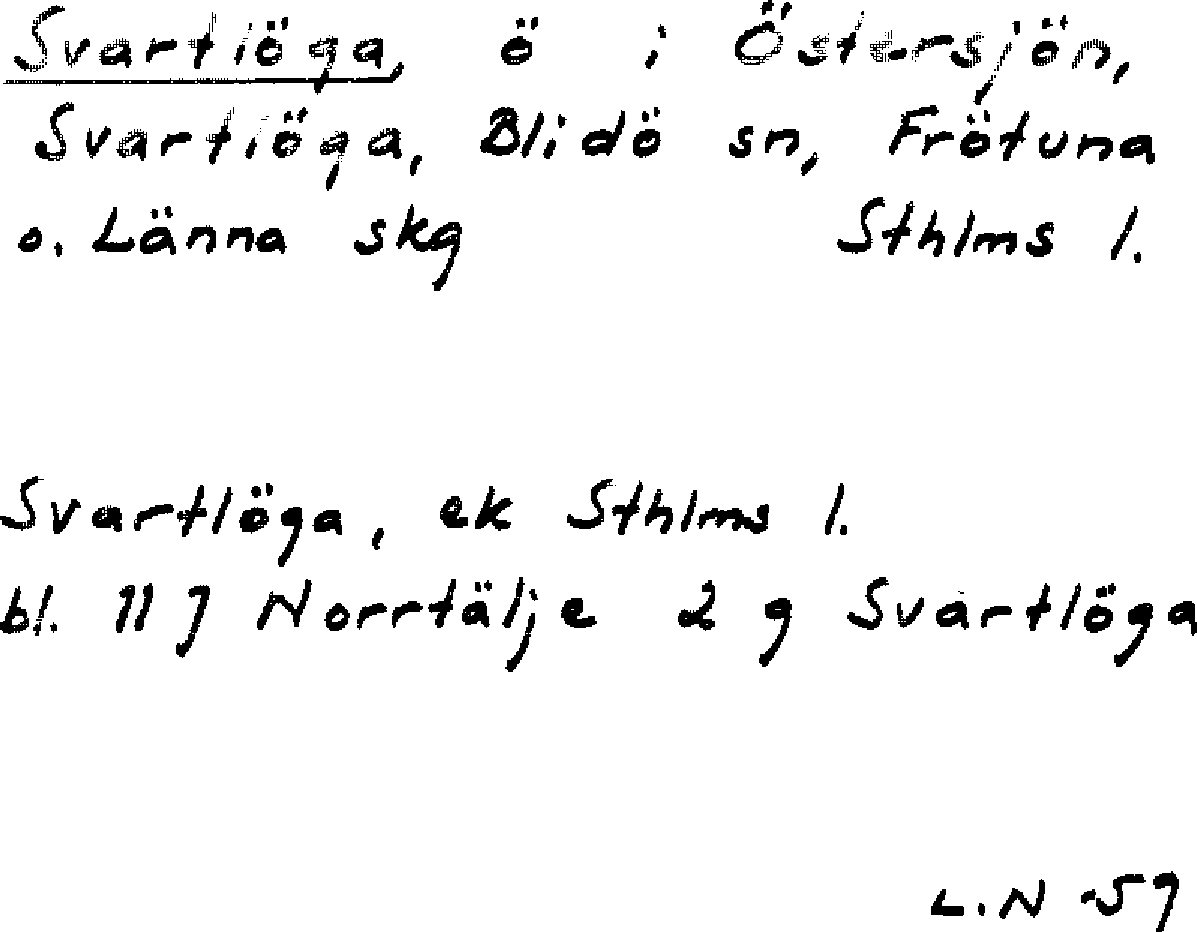 Svartlöga, ö i Östersjön,
Svartlöga, Blidö sn, Frötuna
o. Länna skg Sthlms l.
Svartlöga, ek Sthlms l.
bl. 11 J Norrtälje 2 g Svartlöga
L.N -59